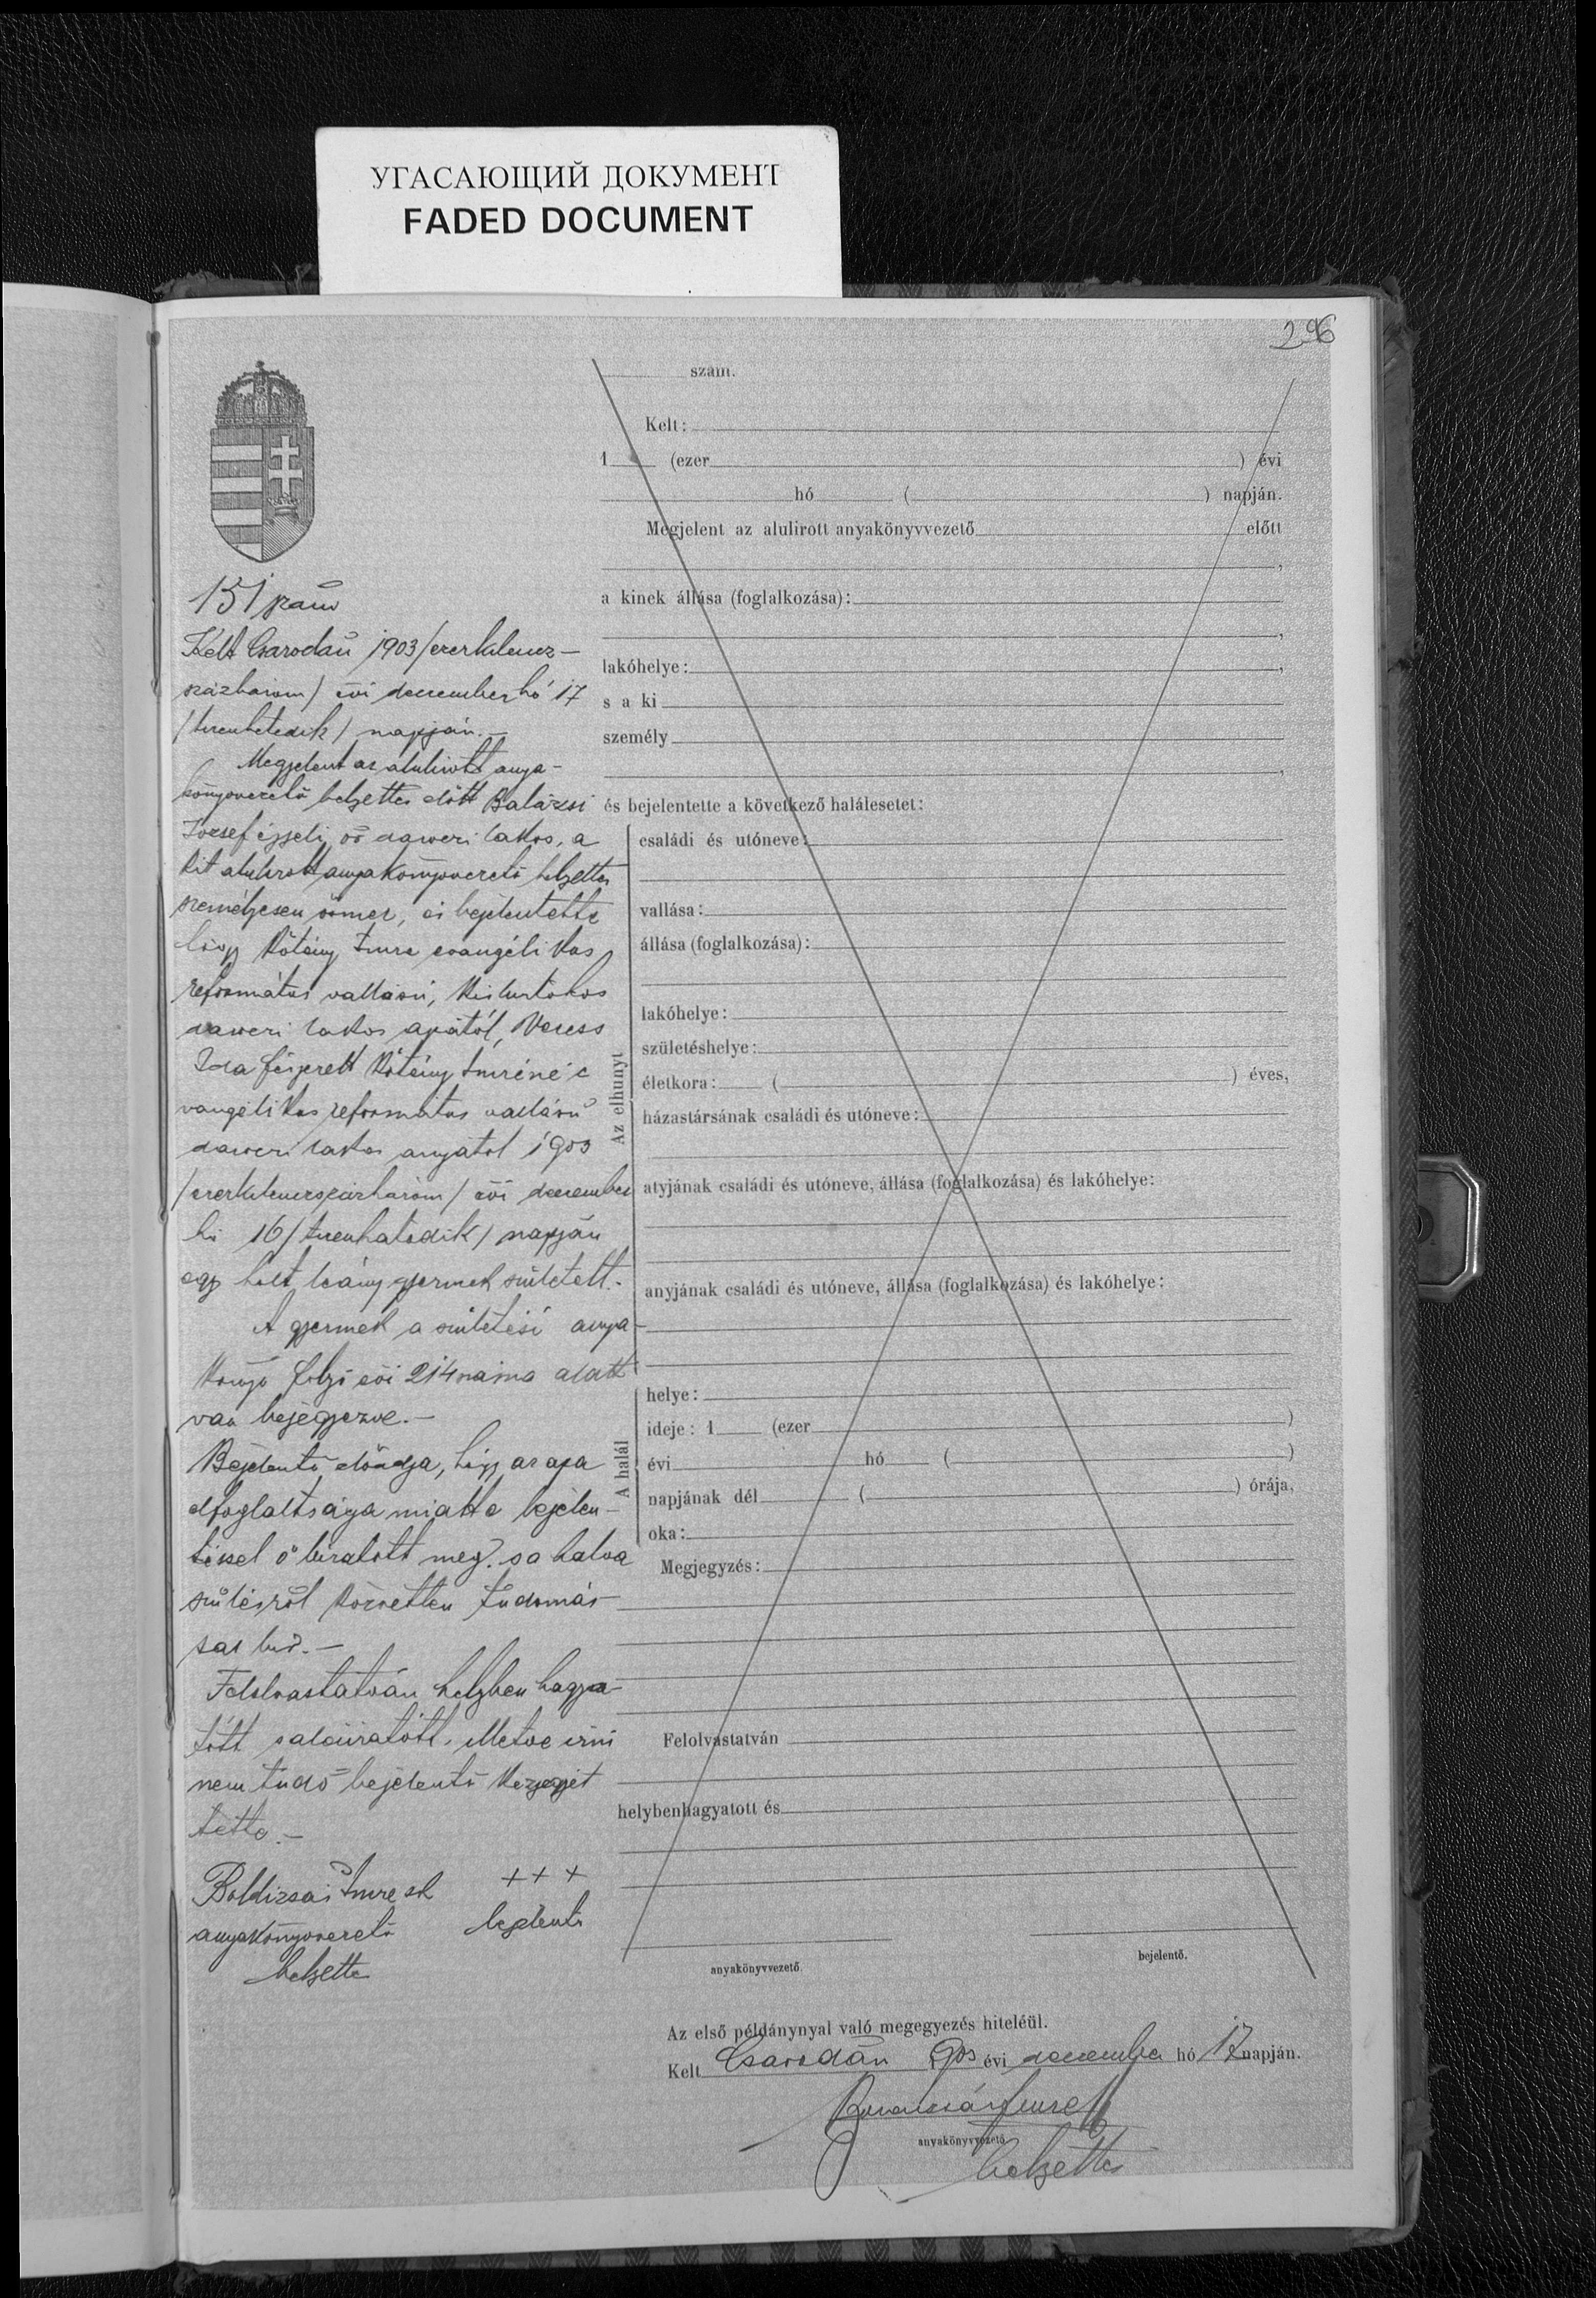 УГАСАЮЩИЙ ДОКУМЕНТ
FADED DOCUMENT
296
szám.
Kelt:
1 (ezer ) évi
hó ( ) napján.
Megjelent az alulirott anyakönyvvezető előtt
,
a kinek állása (foglalkozása):
,
lakóhelye: ,
s a ki
személy
,
és bejelentette a következő halálesetet:
Az elhunyt
családi és utóneve:
vallása:
állása (foglalkozása):
lakóhelye:
születéshelye:
életkora: ( ) éves,
házastársának családi és utóneve:
atyjának családi és utóneve, állása (foglalkozása) és lakóhelye:
anyjának családi és utóneve, állása (foglalkozása) és lakóhelye:
A halál
helye:
ideje: 1 (ezer )
évi hó ( )
napjának dél ( ) órája,
oka:
Megjegyzés:
Felolvastatván
helybenhagyatott és
anyakönyvvezető.
bejelentő.
151 szám
Kelt Csarodán 1903 /ezerkilencz-
százhárom/ évi december hó 17
/tizenhetedik/ napján.-
Megjelent az alulirott anya-
könyvvezető helyettes előtt Balázsi
József éjjeli őr lakos, a
kit alulirott anyakönyvvezető helyettes
személyesen ismer, és bejelentette
hogy Kötény Imre evangélikus
református vallású,
lakos apától, Veress
Ida férjezett Kötény Imréné e
vangélikus református vallású
lakos anyától 1903
/ezerkilenczszázhárom/ évi december
hó 16 /tizenhatodik/ napján
egy holt leány gyermek született.
A gyermek a születési anya
könyv folyó évi 214 száma alatt
van bejegyezve.-
Bejelentő előadja, hogy az apa
elfoglaltsága miatt a bejelen-
téssel ő bizatott meg s a halva
születésről közvetlen tudomás
sal bir.-
Felolvastatván helyben hagya-
tott s aláiratott, illetve irni
nem tudó bejelentő kézjegyét
tette.-
Boldizsár Imre sk +++
anyakönyvvezető bejelentő
helyettes
Az első példánynyal való megegyezés hiteléül.
Kelt Csarodán 1903 évi december hó 17 napján.
Imre
anyakönyvvezető
helyettes